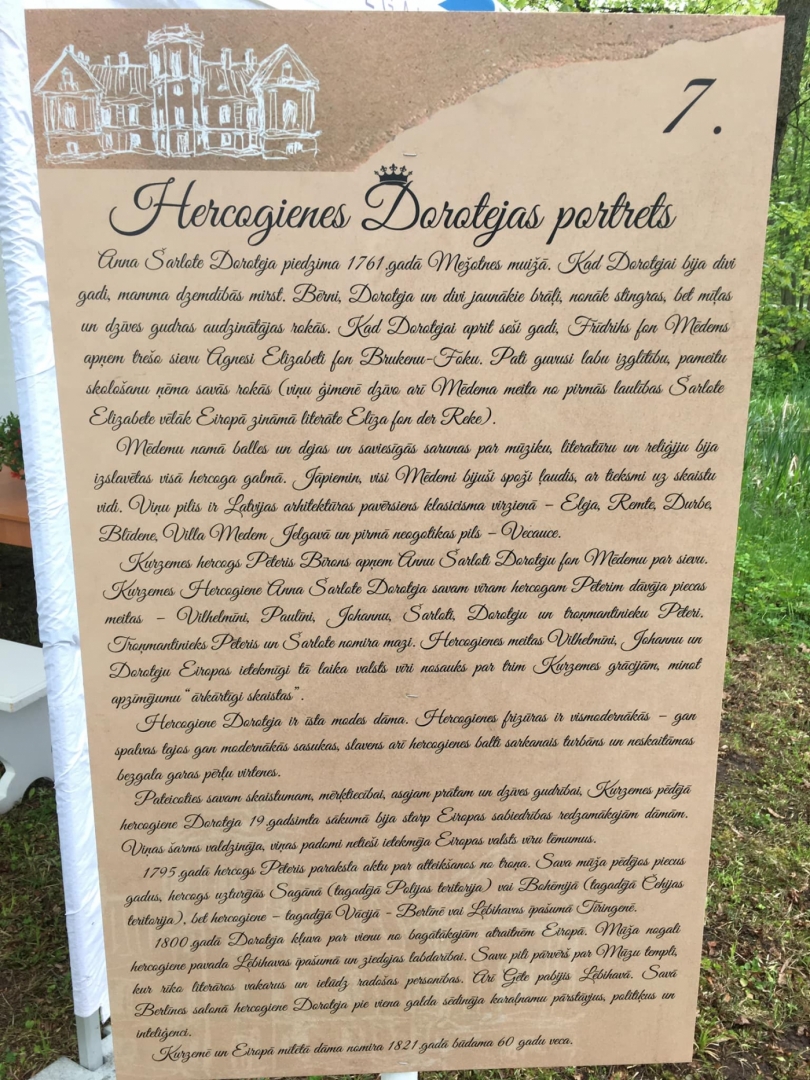 7.
Hercogienes Dorotejas portrets
Anna Šarlote Doroteja piedzima 1761.gadā Mežotnes muižā. Kad Dorotejai bija divi
gadi, mamma dzemdībās mirst. Bērni, Doroteja un divi jaunākie brāļi, nonāk stingras, bet mīļas
un dzīves gudras audzinātājas rokās. Kad Dorotejai aprit seši gadi, Frīdrihs fon Mēdems
apņem trešo sievu Agnesi Elizabeti fon Brukenu-Foku. Pati guvusi labu izglītību, pameitu
skološanu ņēma savās rokās (viņu ģimenē dzīvo arī Mēdema meita no pirmās laulības Šarlote
Elizabete vēlāk Eiropā zināmā literāte Elīza fon der Reke).
Mēdemu namā balles un dejas un saviesīgās sarunas par mūziku, literatūru un reliģiju bija
izslavētas visā hercoga galmā. Jāpiemin, visi Mēdemi bijuši spoži ļaudis, ar tieksmi uz skaistu
vidi. Viņu pilis ir Latvijas arhitektūras pavērsiens klasicisma virzienā – Eleja, Remte, Durbe,
Blīdene, Villa Medem Jelgavā un pirmā neogotikas pils – Vecauce.
Kurzemes hercogs Pēteris Bīrons apņem Annu Šarloti Doroteju fon Mēdemu par sievu.
Kurzemes Hercogiene Anna Šarlote Doroteja savam vīram hercogam Pēterim dāvāja piecas
meitas – Vilhelmīni, Paulīni, Johannu, Šarloti, Doroteju un troņmantinieku Pēteri.
Troņmantinieks Pēteris un Šarlote nomira mazi. Hercogienes meitas Vilhelmīni, Johannu un
Doroteju Eiropas ietekmīgi tā laika valsts vīri nosauks par trim Kurzemes grācijām, minot
apzīmējumu “ārkārtīgi skaistas”.
Hercogiene Doroteja ir īsta modes dāma. Hercogienes frizūras ir vismodernākās – gan
spalvas tajos gan modernākās sasukas, slavens arī hercogienes balti sarkanais turbāns un neskaitāmas
bezgala garas pērļu virtenes.
Pateicoties savam skaistumam, mērķtiecībai, asajam prātam un dzīves gudrībai, Kurzemes pēdējā
hercogiene Doroteja 19.gadsimta sākumā bija starp Eiropas sabiedrības redzamākajām dāmām.
Viņas šarms valdzināja, viņas padomi netieši ietekmēja Eiropas valsts vīru lēmumus.
1795.gadā hercogs Pēteris paraksta aktu par atteikšanos no troņa. Sava mūža pēdējos piecus
gadus, hercogs uzturējās Sagānā (tagadējā Polijas teritorija) vai Bohēmijā (tagadējā Čehijas
teritorija), bet hercogiene – tagadējā Vācijā - Berlīnē vai Lēbihavas īpašumā Tīringenē.
1800.gadā Doroteja kļuva par vienu no bagātākajām atraitnēm Eiropā. Mūža nogali
hercogiene pavada Lēbihavas īpašumā un ziedojas labdarībai. Savu pili pārvērš par Mūzu templi,
kur rīko literāros vakarus un ielūdz radošas personības. Arī Gēte pabijis Lēbihavā. Savā
Berlīnes salonā hercogiene Doroteja pie viena galda sēdināja karaļnamu pārstāvjus, politiķus un
inteliģenci.
Kurzemē un Eiropā mīlētā dāma nomira 1821.gadā būdama 60 gadu veca.